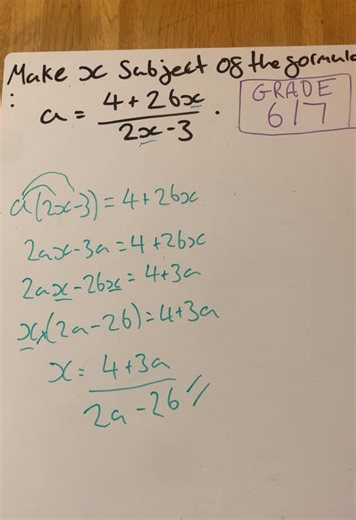 Make x Subject of the formula
: a = (4 + 26x)/(2x - 3) .
GRADE
6/7
a(2x-3) = 4 + 26x
2ax - 3a = 4 + 26x
2ax - 26x = 4 + 3a
x(2a - 26) = 4 + 3a
x = (4 + 3a)/(2a - 26)